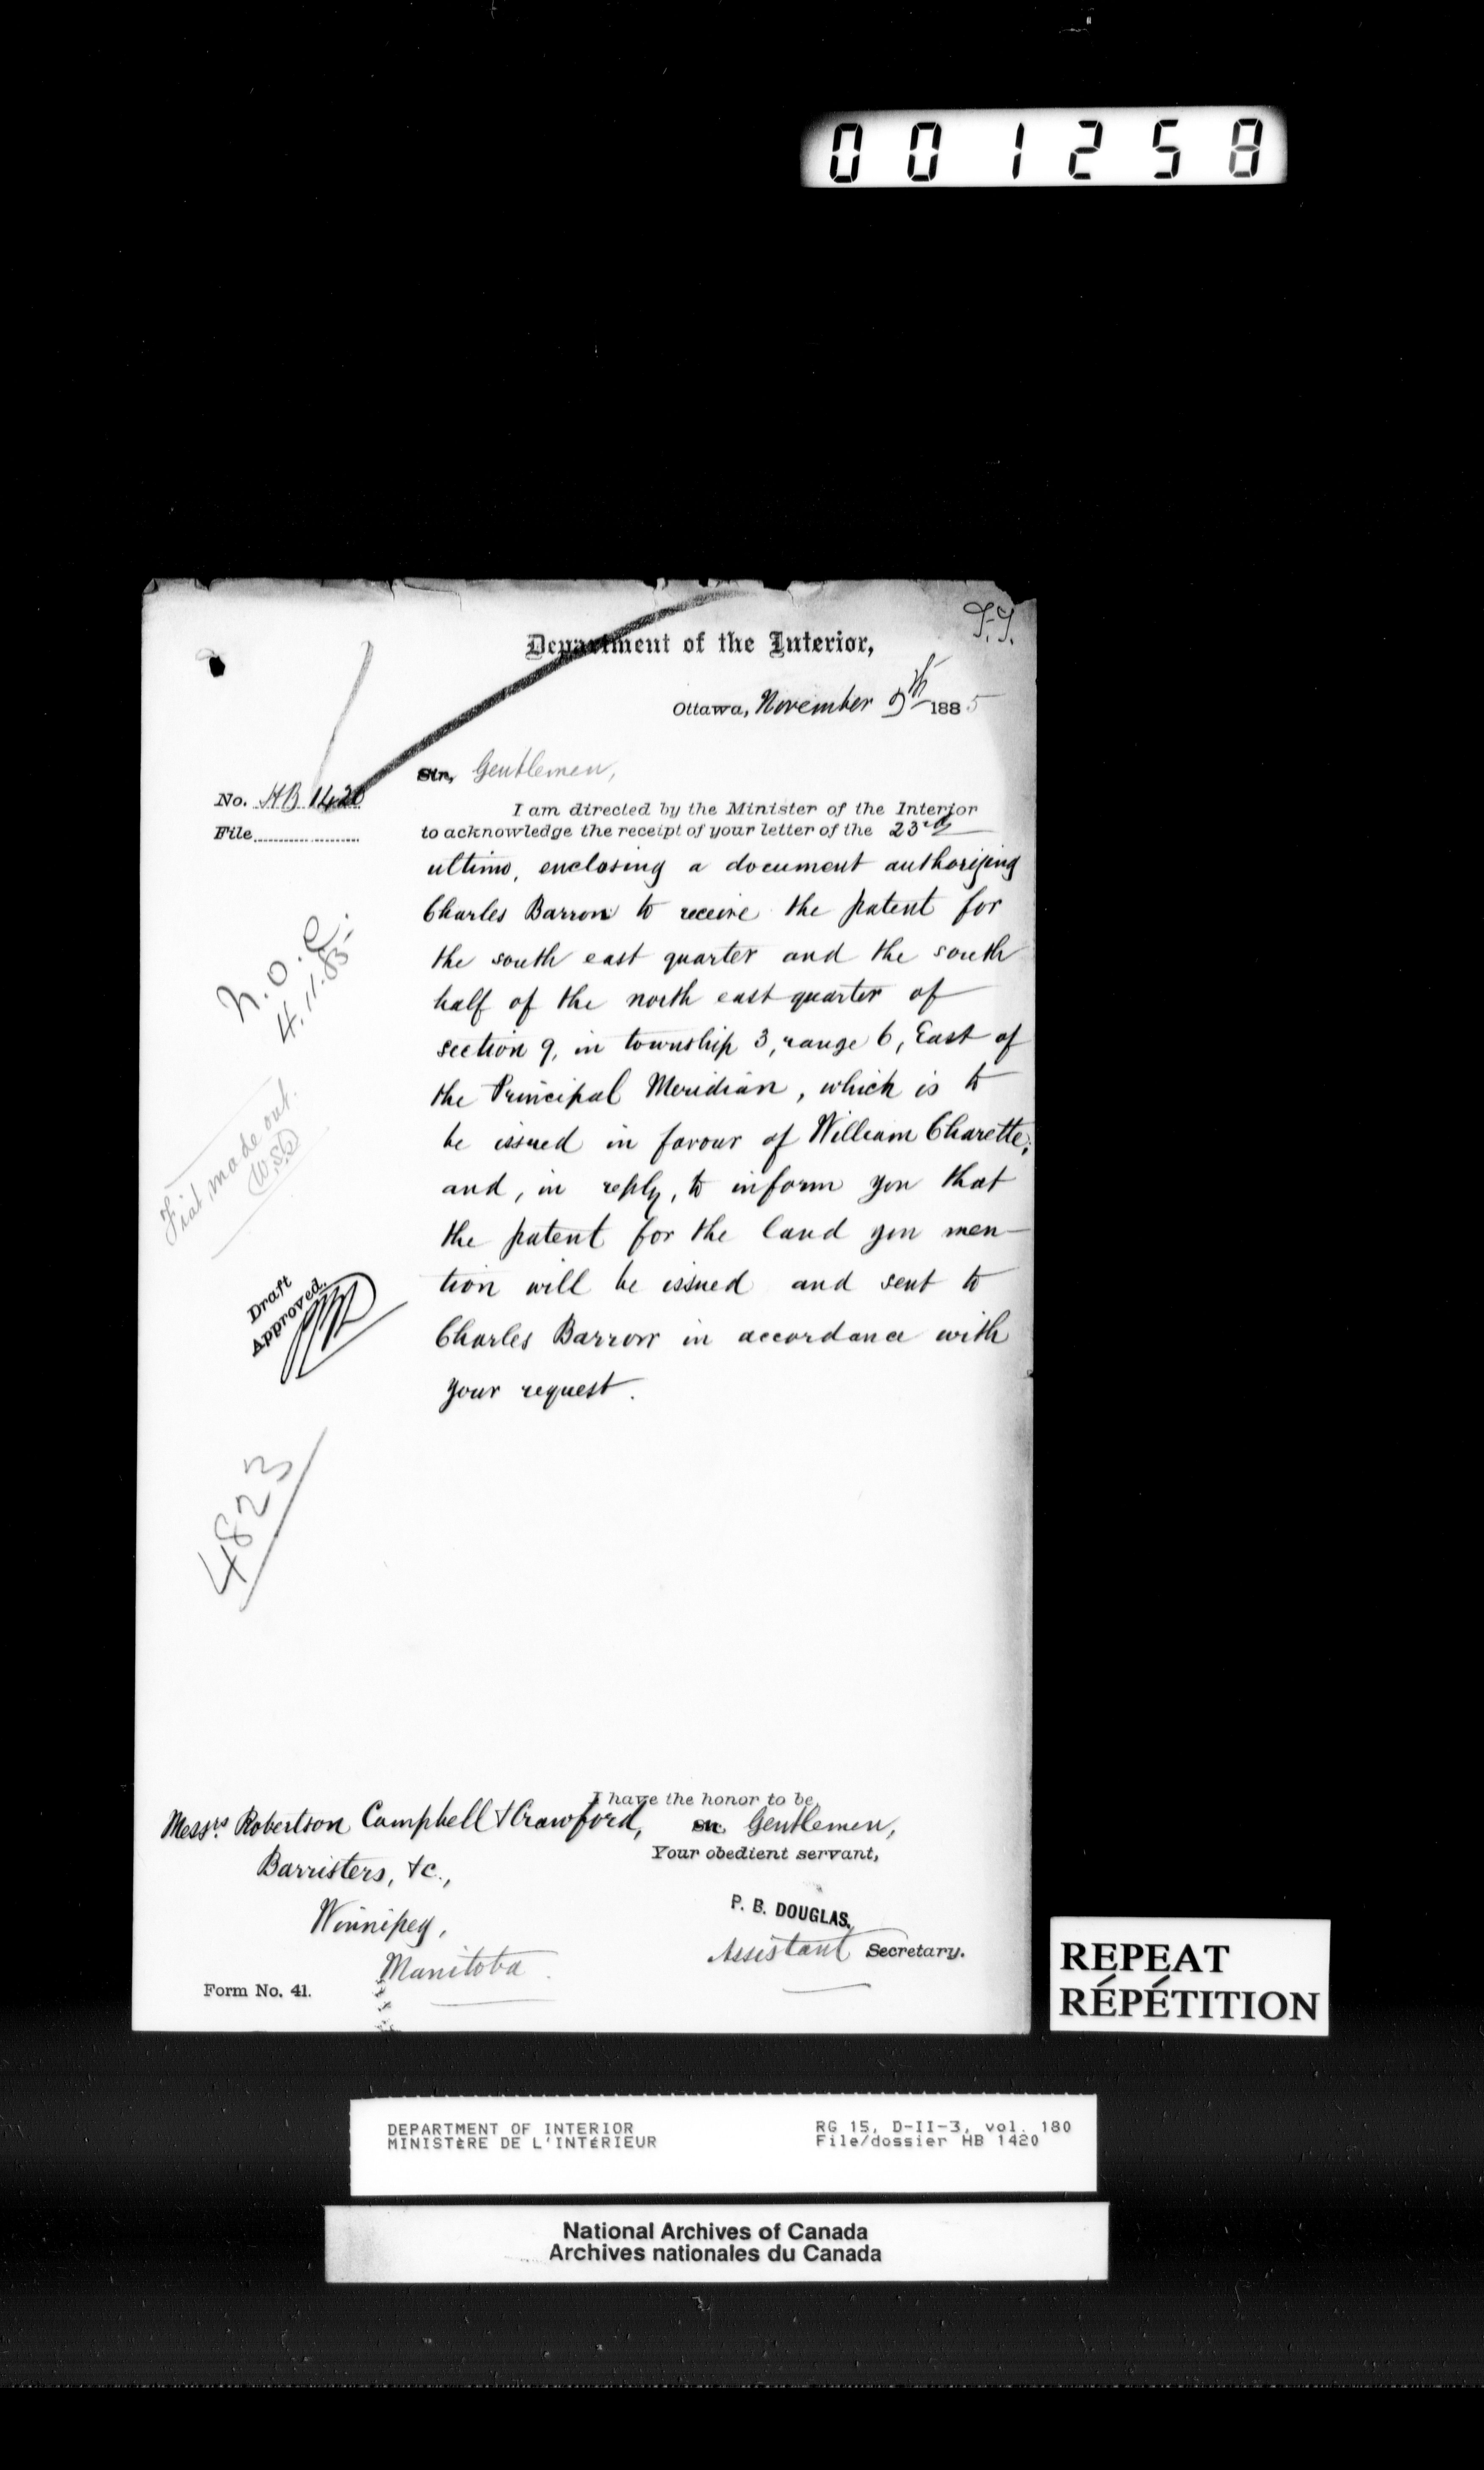 001258
T.G.
Department of the Interior,
Ottawa, November 9th 1885
Sir, Gentlemen,
No. HB 1420
File
I am directed by the Minister of the Interior
to acknowledge the receipt of your letter of the 23rd
ultimo, enclosing a document authorizing
Charles Barron to receive the patent for
the south east quarter and the south
half of the north east quarter of
section 9, in township 3, range 6, East of
the Principal Meridian, which is to
be issued in favour of William Charette;
and, in reply, to inform you that
the patent for the land you men-
tion will be issued and sent to
Charles Barron in accordance with
your request.
N.O.C.
4.11.85
Fiat made out.
Draft
Approved.
4823
I have the honor to be,
Sir, Gentlemen,
Your obedient servant,
P. B. DOUGLAS,
Assistant Secretary.
Messrs. Robertson Campbell & Crawford,
Barristers, &c.,
Winnipeg,
Manitoba.
Form No. 41.
REPEAT
RÉPÉTITION
DEPARTMENT OF INTERIOR
MINISTÈRE DE L'INTÉRIEUR
RG 15, D-II-3, vol. 180
File/dossier HB 1420
National Archives of Canada
Archives nationales du Canada